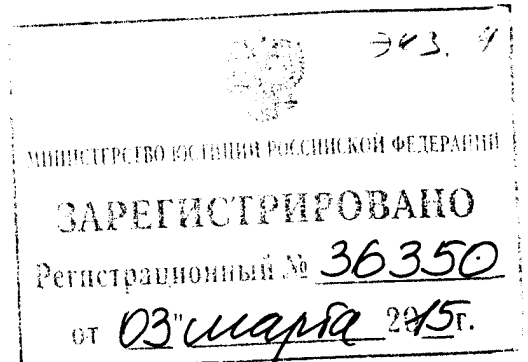 Экз. 4
МИНИСТЕРСТВО ЮСТИЦИИ РОССИЙСКОЙ ФЕДЕРАЦИИ
ЗАРЕГИСТРИРОВАНО
Регистрационный № 36350
от "03" марта 2015г.